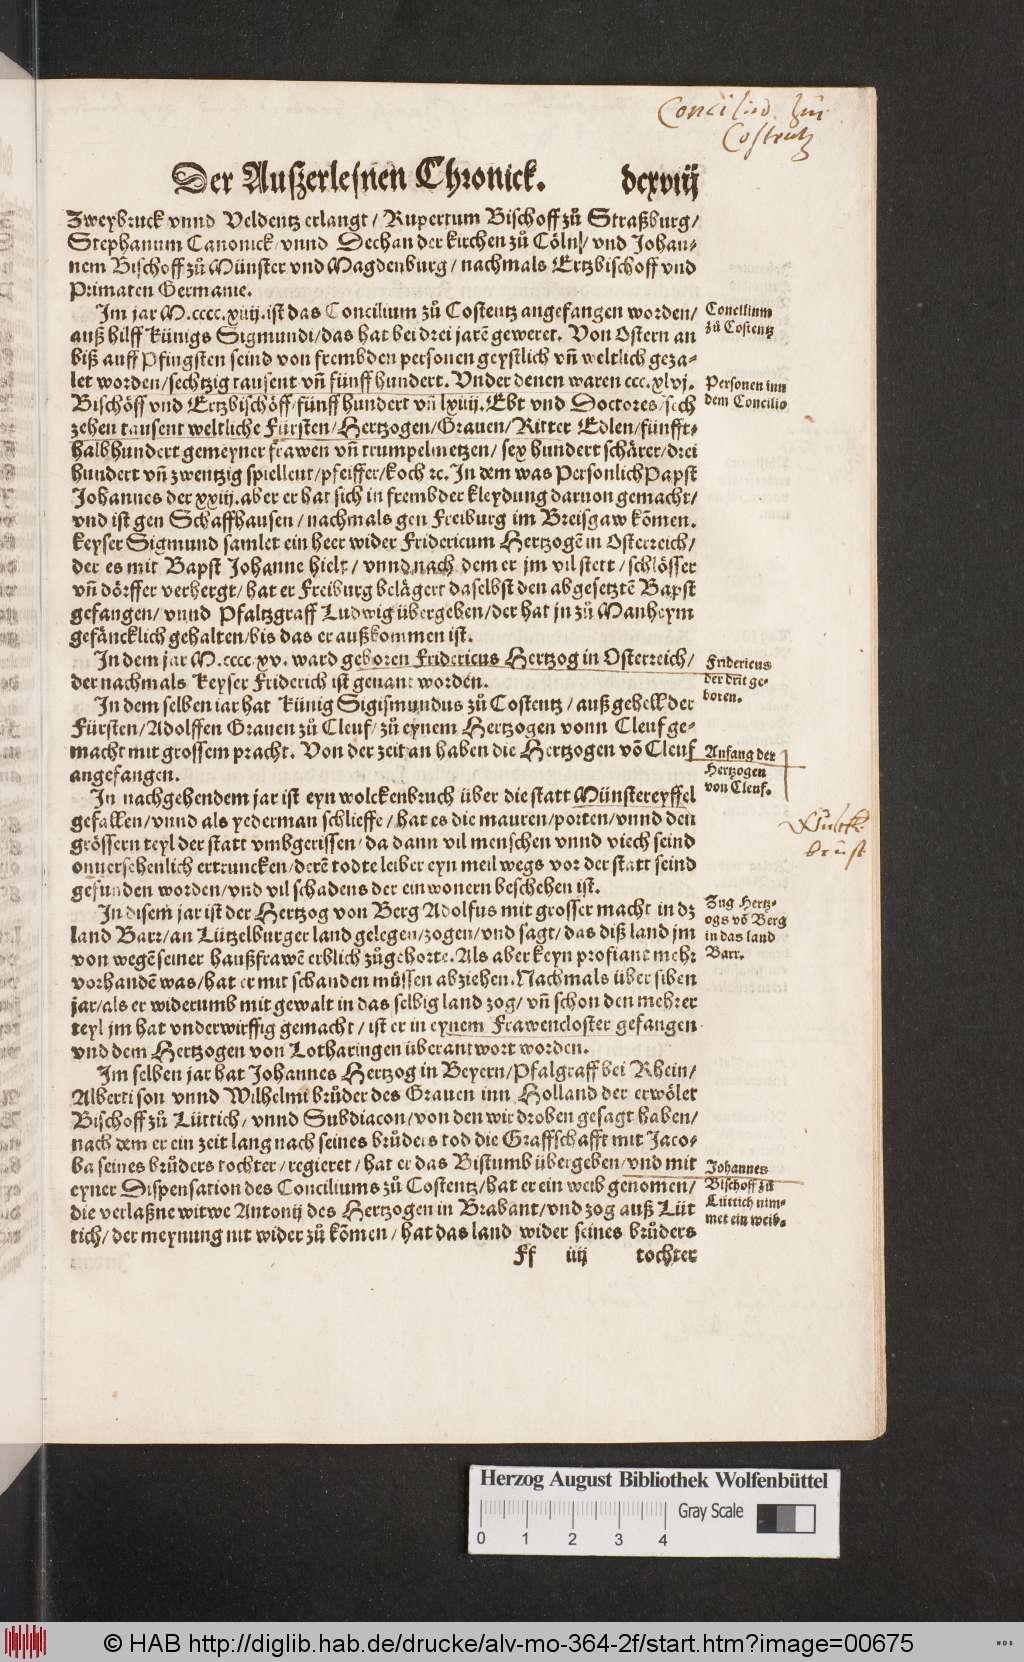 Concilio zur
Costentz
Der Außerlesnen Chronick. dcxviij
Zweybruck vnnd Veldentz erlangt / Rupertum Bischoff zů Straßburg /
Stephanum Canonick / vnnd Dechan der kirchen zů Cöln / vnd Johan-
nem Bischoff zů Münster vnd Magdenburg / nachmals Ertzbischoff vnd
Primaten Germanie.
Im jar M.cccc.xiiij. ist das Concilium zů Costentz angefangen worden /
auß hilff Künigs Sigmundi / das hat bei drei jarē geweret. Von Ostern an
biß auff Pfingsten seind von frembden personen geystlich vñ weltlich geza-
let worden / sechtzig tausent vñ fünff hundert. Vnder denen waren ccc.xlvj.
Bischöff vnd Ertzbischöff / fünff hundert vñ lxiiij. Ebt vnd Doctores / sech
zehen tausent weltliche Fürsten / Hertzogen / Grauen / Ritter Edlen / fünfft-
halbhundert gemeyner frawen vñ trumpelmetzen / sex hundert schärer / drei
hundert vñ zwentzig spielleut / pfeiffer / koch ꝛc. In dem was Personlich Papst
Johannes der xxiij. aber er hat sich in frembder kleydung daruon gemacht /
vnd ist gen Schaffhausen / nachmals gen Freiburg im Breisgaw kōmen.
Keyser Sigmund samlet ein heer wider Fridericum Hertzogē in Osterreich /
der es mit Bapst Johanne hielt / vnnd nach dem er jm vil stett / schlösser
vñ dörffer verhergt / hat er Freiburg belägert daselbst den abgesetztē Bapst
gefangen / vnnd Pfaltzgraff Ludwig übergeben / der hat jn zů Manheym
gefäncklich gehalten / bis das er außkommen ist.
In dem jar M.cccc.xv. ward geboren Fridericus Hertzog in Osterreich /
der nachmals Keyser Friderich ist genant worden.
In dem selben iar hat Künig Sigismundus zů Costentz / auß gehell der
Fürsten / Adolffen Grauen zů Cleuf / zů eynem Hertzogen vonn Cleuf ge-
macht mit grossem pracht. Von der zeit an haben die Hertzogen vō Cleuf
angefangen.
In nachgehendem jar ist eyn wolckenbruch über die statt Münstereyffel
gefallen / vnnd als yederman schlieffe / hat es die mauren / porten / vnnd den
grössern teyl der statt vmbgerissen / da dann vil menschen vnnd viech seind
onuersehenlich ertruncken / derē todte leiber eyn meil wegs vor der statt seind
gefunden worden / vnd vil schadens der einwonern beschehen ist.
In disem jar ist der Hertzog von Berg Adolfus mit grosser macht in dz
land Barr / an Lützelburger land gelegen / zogen / vnd sagt / das diß land jm
von wegē seiner haußfrawē erblich zůgehorte. Als aber keyn profiant mehr
vorhandē was / hat er mit schanden müssen abziehen. Nachmals über siben
jar / als er widerumb mit gewalt in das selbig land zog / vñ schon den mehrer
teyl jm hat vnderwirffig gemacht / ist er in eynem Frawencloster gefangen
vnd dem Hertzogen von Lotharingen überantwort worden.
Im selben jar hat Johannes Hertzog in Beyern / Pfalgraff bei Rhein /
Alberti son vnnd Wilhelmi brůder des Grauen inn Holland der erwölet
Bischoff zů Lüttich / vnnd Subdiacon / von den wir droben gesagt haben /
nach dem er ein zeit lang nach seines brůders tod die Graffschafft mit Jaco-
ba seines brůders tochter / regieret / hat er das Bistumb übergeben / vnd mit
eyner Dispensation des Conciliums zů Costentz / hat er ein weib genomen /
die verlaßne witwe Antonij des Hertzogen in Brabant / vnd zog auß Lüt
tich / der meynung nit wider zů kōmen / hat das land wider seines brůders
Ff iiij tochter
Concilium
zů Costentz
Personen inn
dem Concilio
Fridericus
der drit ge-
boren.
Anfang der
Hertzogen
von Cleuf.
Wulck
brust
Zug Hertz-
ogs vō Berg
in das land
Barr.
Johannes
Bischoff zů
Lüttich nim-
met ein weib.
Herzog August Bibliothek Wolfenbüttel
Gray Scale
0 1 2 3 4
© HAB http://diglib.hab.de/drucke/alv-mo-364-2f/start.htm?image=00675